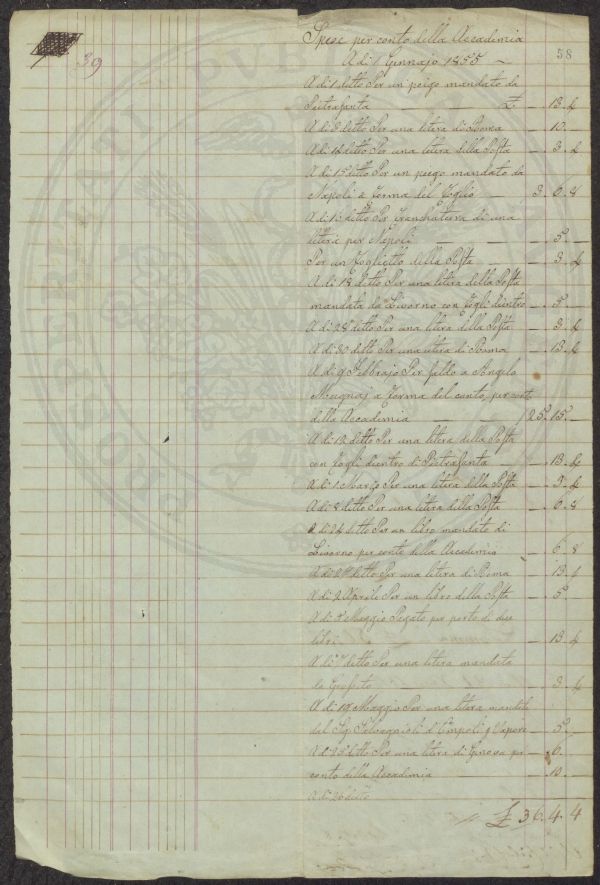 39
58
Spese per conto della Accademia
A di 1 Gennajo 1855 —
A di 1 detto Per un peigo mandato da
Pietrasanta — £ — 13. 4
A di 8 detto Per una litera di Roma — 10. —
A di 12 detto Per una litera della Posta — 3. 4
A di 15 detto Per un peego mandato da
Napoli a forma del foglio — 3. 6. 8
A di detto Per Franchaterra di una
litera per Napoli — 5. —
Per un foglietto della Posta — 3. 4
A di 18 detto Per una litera della Posta
mandata da Livorno con fogli dientro — 5. —
A di 28 detto Per una litera della Posta — 3. 4
A di 30 detto Per una litera di Roma — 13. 4
A di 9 Febbrajo Per saldo a Angelo
a forma del conto, per conto
della Accademia — 25. 15. —
A di 12 detto Per una litera della Posta
con fogli dientro di Pietrasanta — 13. 4
A di 1. Marzo Per una litera della Posta — 3. 4
A di 8 detto Per una litera della Posta — 6. 8
A di 24 detto Per un libro mandato di
Livorno per conto della Accademia — 6. 8
A di detto Per una litera di Roma — 13. 4
A di 2 Aprile Per un libro della Posta — 5. —
A di Maggio Pagato per porto di due
libri — 13. 4
A di detto Per una litera mandata
da Groseto — 3. 4
A di 19 Maggio Per una litera mandata
dal Sig. d'Empoli — 5. —
A di detto Per una litera di Genova per — 6. —
conto della Accademia — 10. —
A di 26 detto
£ 36. 4. 4